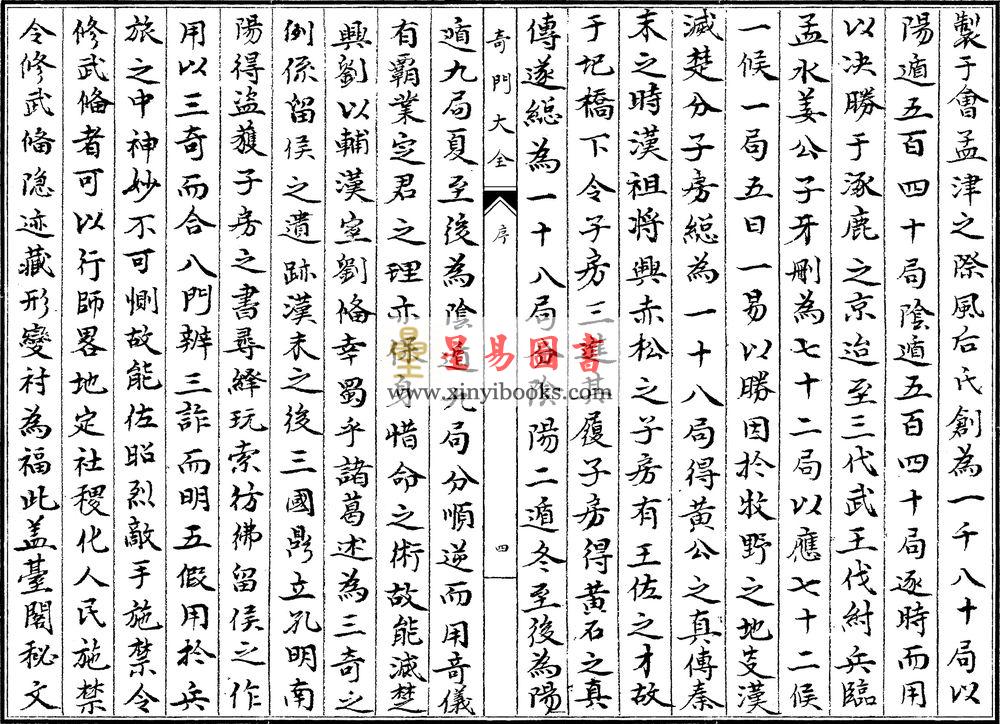 製于會孟津之際風后氏創為一千八十局以
陽遁五百四十局陰遁五百四十局逐時而用
以决勝于涿鹿之京迨至三代武王伐紂兵臨
孟水姜公子牙刪為七十二局以應七十二候
一候一局五日一易以勝因於牧野之地芟漢
滅楚分子房緫為一十八局得黃公之真傳秦
末之時漢祖將興赤松之子房有王佐之才故
于圯橋下令子房三進其履子房得黃石之真
傳遂緫為一十八局分陰陽二遁冬至後為陽
奇門大全
序
四
遁九局夏至後為陰遁九局分順逆而用竒儀
有霸業定君之理亦保身惜命之術故能滅楚
興劉以輔漢室劉俻幸蜀乎諸葛述為三奇之
例係留侯之遺跡漢末之後三國鼎立孔明南
陽得盜蔓子房之書尋繹玩索彷彿留侯之作
用以三奇而合八門辨三詐而明五假用於兵
旅之中神妙不可惻故能佐昭烈敵手施禁令
修武俻者可以行師畧地定社稷化人民施禁
令修武俻隐迹藏形變衬為福此盖臺閣秘文
星易图書
www.xinyibooks.com